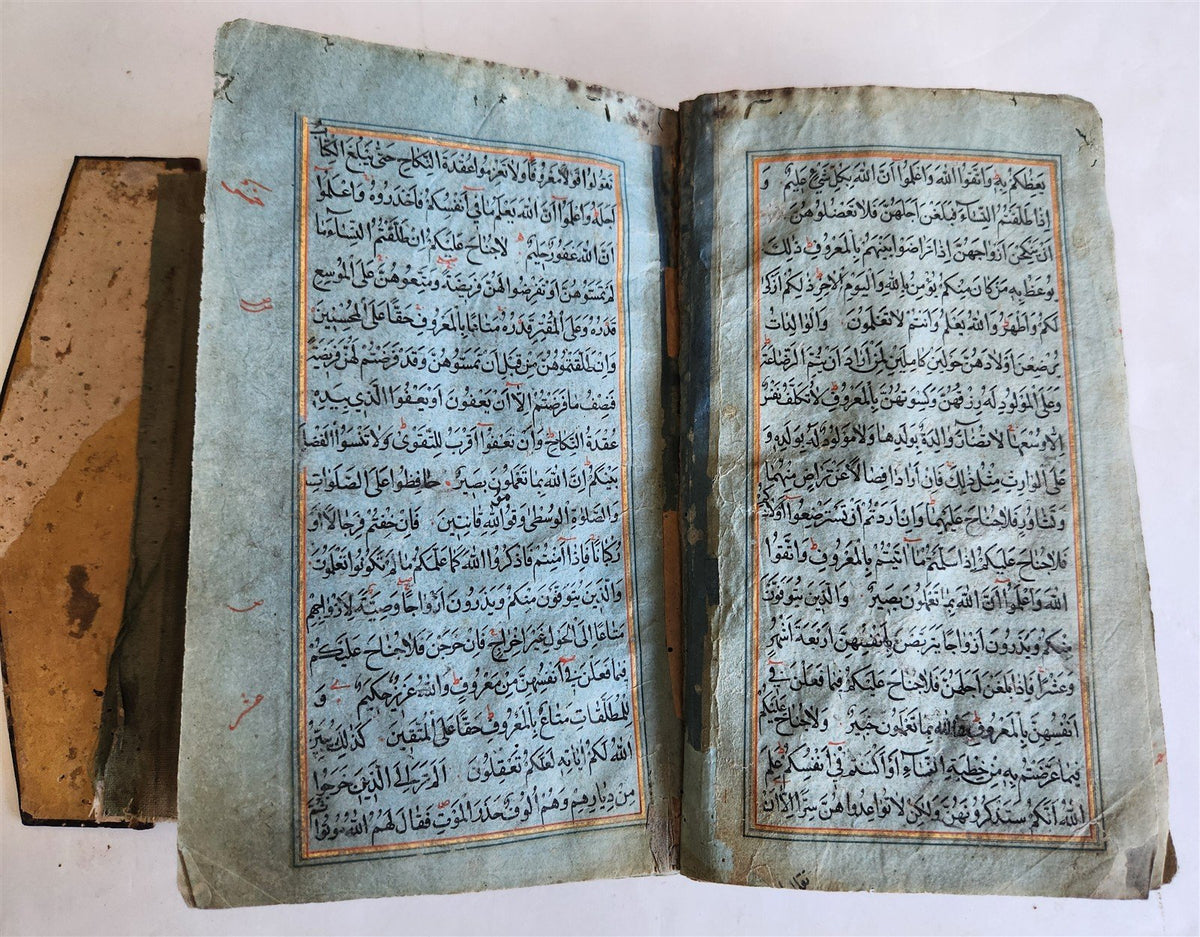 يَعِظُكُمْ بِهِ وَاتَّقُوا اللهَ وَاعْلَمُوا أَنَّ اللهَ بِكُلِّ شَيْءٍ عَلِيمٌ وَ
إِذَا طَلَّقْتُمُ النِّسَآءَ فَبَلَغْنَ أَجَلَهُنَّ فَلَا تَعْضُلُوهُنَّ
أَنْ يَنْكِحْنَ أَزْوَاجَهُنَّ إِذَا تَرَاضَوْا بَيْنَهُمْ بِالْمَعْرُوفِ ذٰلِكَ
يُوعَظُ بِهِ مَنْ كَانَ مِنْكُمْ يُؤْمِنُ بِاللهِ وَالْيَوْمِ الْاٰخِرِ ذٰلِكُمْ أَزْكٰى
لَكُمْ وَأَطْهَرُ وَاللهُ يَعْلَمُ وَأَنْتُمْ لَا تَعْلَمُونَ وَالْوَالِدَاتُ
يُرْضِعْنَ أَوْلَادَهُنَّ حَوْلَيْنِ كَامِلَيْنِ لِمَنْ أَرَادَ أَنْ يُتِمَّ الرَّضَاعَةَ
وَعَلَى الْمَوْلُودِ لَهُ رِزْقُهُنَّ وَكِسْوَتُهُنَّ بِالْمَعْرُوفِ لَا تُكَلَّفُ نَفْسٌ
إِلَّا وُسْعَهَا لَا تُضَآرَّ وَالِدَةٌ بِوَلَدِهَا وَلَا مَوْلُودٌ لَهُ بِوَلَدِهِ وَ
عَلَى الْوَارِثِ مِثْلُ ذٰلِكَ فَإِنْ أَرَادَا فِصَالًا عَنْ تَرَاضٍ مِنْهُمَا
وَتَشَاوُرٍ فَلَا جُنَاحَ عَلَيْهِمَا وَإِنْ أَرَدْتُمْ أَنْ تَسْتَرْضِعُوا أَوْلَادَكُمْ
فَلَا جُنَاحَ عَلَيْكُمْ إِذَا سَلَّمْتُمْ مَآ اٰتَيْتُمْ بِالْمَعْرُوفِ وَاتَّقُوا
اللهَ وَاعْلَمُوا أَنَّ اللهَ بِمَا تَعْمَلُونَ بَصِيرٌ وَالَّذِينَ يُتَوَفَّوْنَ
مِنْكُمْ وَيَذَرُونَ أَزْوَاجًا يَتَرَبَّصْنَ بِأَنْفُسِهِنَّ أَرْبَعَةَ أَشْهُرٍ
وَعَشْرًا فَإِذَا بَلَغْنَ أَجَلَهُنَّ فَلَا جُنَاحَ عَلَيْكُمْ فِيمَا فَعَلْنَ فِي
أَنْفُسِهِنَّ بِالْمَعْرُوفِ وَاللهُ بِمَا تَعْمَلُونَ خَبِيرٌ وَلَا جُنَاحَ عَلَيْكُمْ
فِيمَا عَرَّضْتُمْ بِهِ مِنْ خِطْبَةِ النِّسَآءِ أَوْ أَكْنَنْتُمْ فِي أَنْفُسِكُمْ عَلِمَ
اللهُ أَنَّكُمْ سَتَذْكُرُونَهُنَّ وَلٰكِنْ لَا تُوَاعِدُوهُنَّ سِرًّا إِلَّا أَنْ
تَقُولُوا قَوْلًا مَعْرُوفًا وَلَا تَعْزِمُوا عُقْدَةَ النِّكَاحِ حَتّٰى يَبْلُغَ الْكِتَابُ
أَجَلَهُ وَاعْلَمُوا أَنَّ اللهَ يَعْلَمُ مَا فِي أَنْفُسِكُمْ فَاحْذَرُوهُ وَاعْلَمُوا
أَنَّ اللهَ غَفُورٌ حَلِيمٌ لَا جُنَاحَ عَلَيْكُمْ إِنْ طَلَّقْتُمُ النِّسَآءَ مَا
لَمْ تَمَسُّوهُنَّ أَوْ تَفْرِضُوا لَهُنَّ فَرِيضَةً وَمَتِّعُوهُنَّ عَلَى الْمُوسِعِ
قَدَرُهُ وَعَلَى الْمُقْتِرِ قَدَرُهُ مَتَاعًا بِالْمَعْرُوفِ حَقًّا عَلَى الْمُحْسِنِينَ
وَإِنْ طَلَّقْتُمُوهُنَّ مِنْ قَبْلِ أَنْ تَمَسُّوهُنَّ وَقَدْ فَرَضْتُمْ لَهُنَّ فَرِيضَةً
فَنِصْفُ مَا فَرَضْتُمْ إِلَّا أَنْ يَعْفُونَ أَوْ يَعْفُوَا الَّذِي بِيَدِهِ
عُقْدَةُ النِّكَاحِ وَأَنْ تَعْفُوا أَقْرَبُ لِلتَّقْوٰى وَلَا تَنْسَوُا الْفَضْلَ
بَيْنَكُمْ إِنَّ اللهَ بِمَا تَعْمَلُونَ بَصِيرٌ حَافِظُوا عَلَى الصَّلَوَاتِ
وَالصَّلَاةِ الْوُسْطٰى وَقُومُوا لِلّٰهِ قَانِتِينَ فَإِنْ خِفْتُمْ فَرِجَالًا أَوْ
رُكْبَانًا فَإِذَا أَمِنْتُمْ فَاذْكُرُوا اللهَ كَمَا عَلَّمَكُمْ مَا لَمْ تَكُونُوا تَعْلَمُونَ
وَالَّذِينَ يُتَوَفَّوْنَ مِنْكُمْ وَيَذَرُونَ أَزْوَاجًا وَصِيَّةً لِأَزْوَاجِهِمْ
مَتَاعًا إِلَى الْحَوْلِ غَيْرَ إِخْرَاجٍ فَإِنْ خَرَجْنَ فَلَا جُنَاحَ عَلَيْكُمْ
فِيمَا فَعَلْنَ فِي أَنْفُسِهِنَّ مِنْ مَعْرُوفٍ وَاللهُ عَزِيزٌ حَكِيمٌ وَ
لِلْمُطَلَّقَاتِ مَتَاعٌ بِالْمَعْرُوفِ حَقًّا عَلَى الْمُتَّقِينَ كَذٰلِكَ يُبَيِّنُ
اللهُ لَكُمْ اٰيَاتِهِ لَعَلَّكُمْ تَعْقِلُونَ أَلَمْ تَرَ إِلَى الَّذِينَ خَرَجُوا
مِنْ دِيَارِهِمْ وَهُمْ أُلُوفٌ حَذَرَ الْمَوْتِ فَقَالَ لَهُمُ اللهُ مُوتُوا ثُمَّ